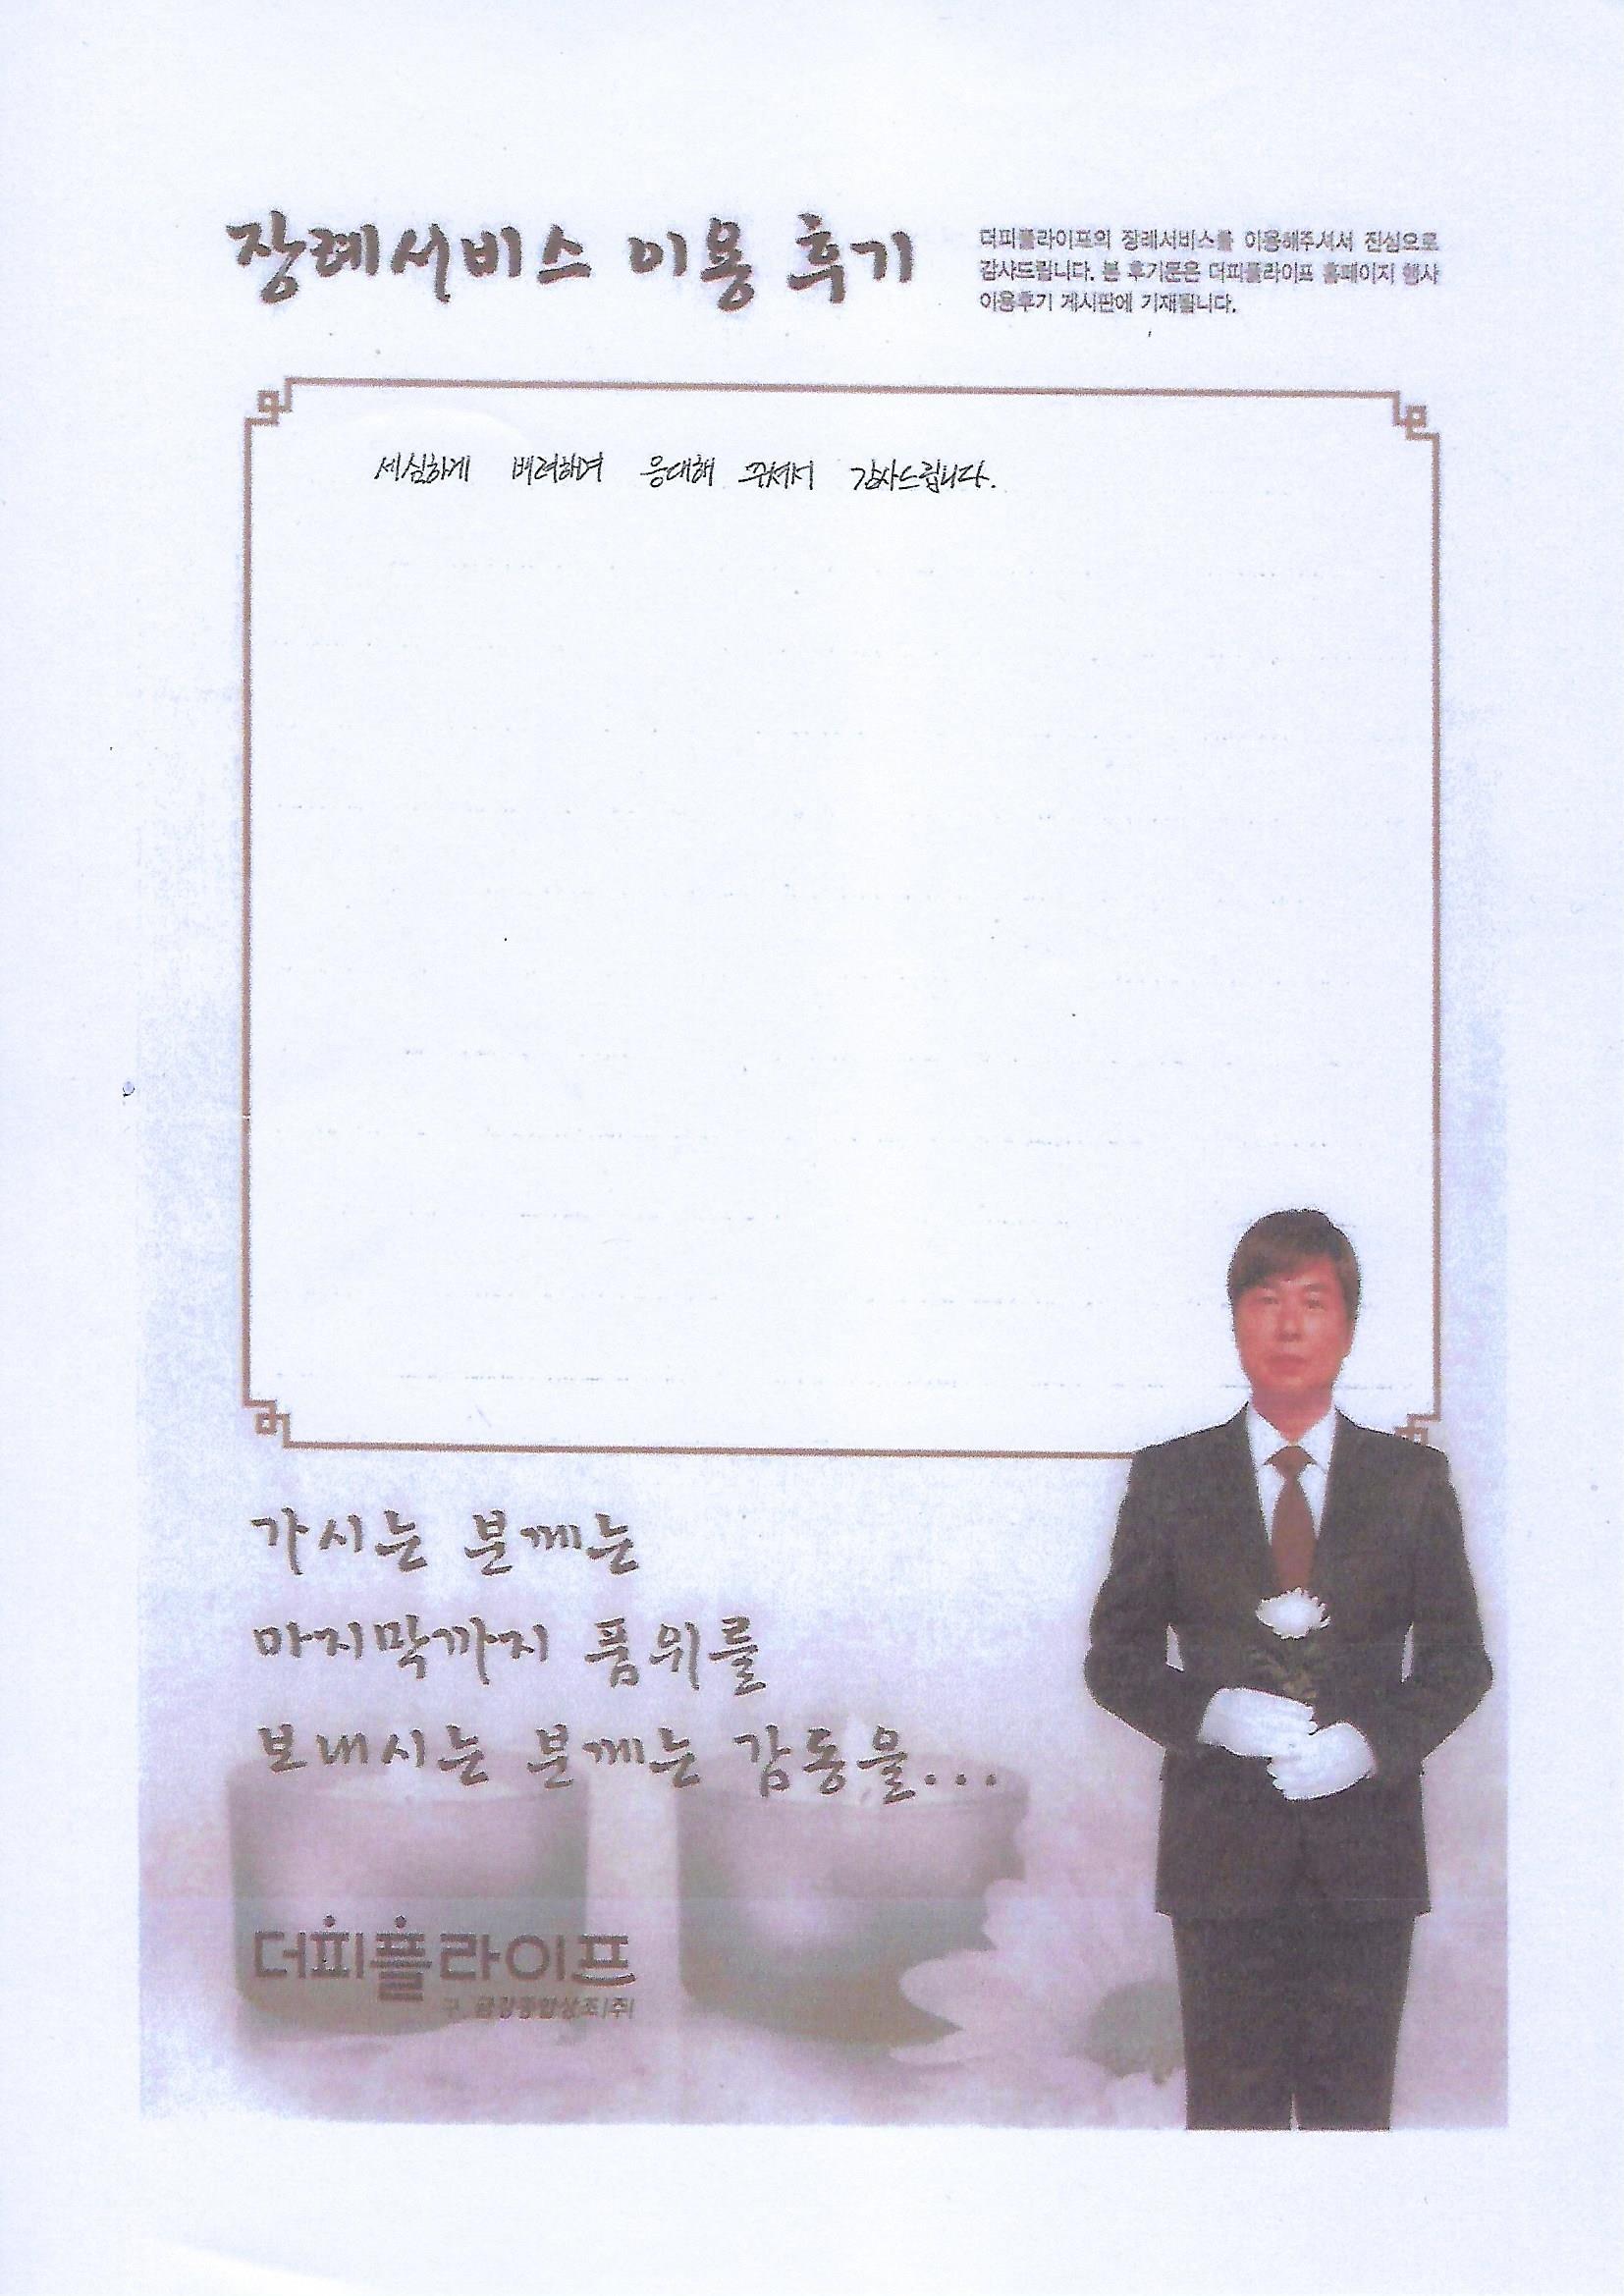 장례서비스 이용 후기
더피플라이프의 장례서비스를 이용해주셔서 진심으로
감사드립니다. 본 후기문은 더피플라이프 홈페이지 행사
이용후기 게시판에 기재됩니다.
세심하게 배려하며 응대해 주셔서 감사드립니다.
가시는 분께는
마지막까지 품위를
보내시는 분께는 감동을...
더피플라이프
구. 금강종합상조(주)